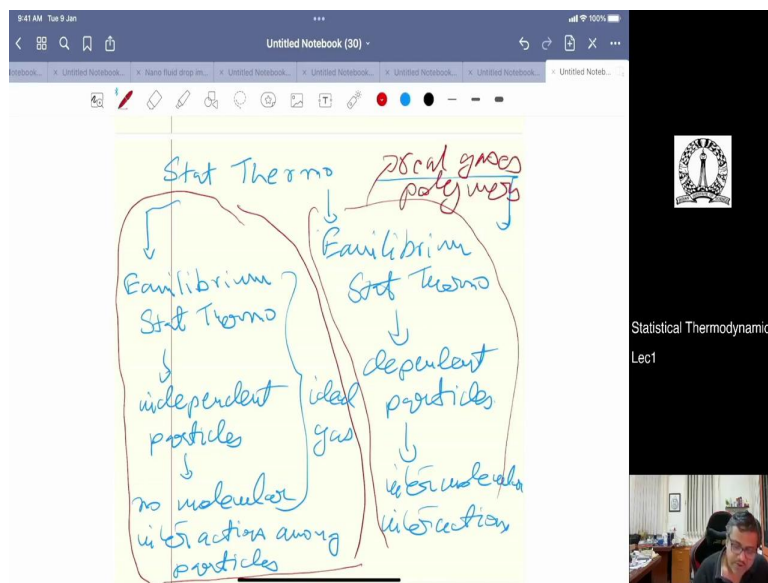 9:41 AM Tue 9 Jan
100%
Untitled Notebook (30)
Notebook...
× Untitled Notebook...
× Nano fluid drop im...
× Untitled Notebook...
× Untitled Notebook...
× Untitled Notebook...
× Untitled Notebook...
× Untitled Noteb...
Stat Thermo
gases
polymers
Equilibrium
Stat Thermo
independent
particles
no molecular
interaction among
particles
ideal
gas
Equilibrium
Stat Thermo
dependent
particles
intermolecular
interactions
Statistical Thermodynamic
Lec1